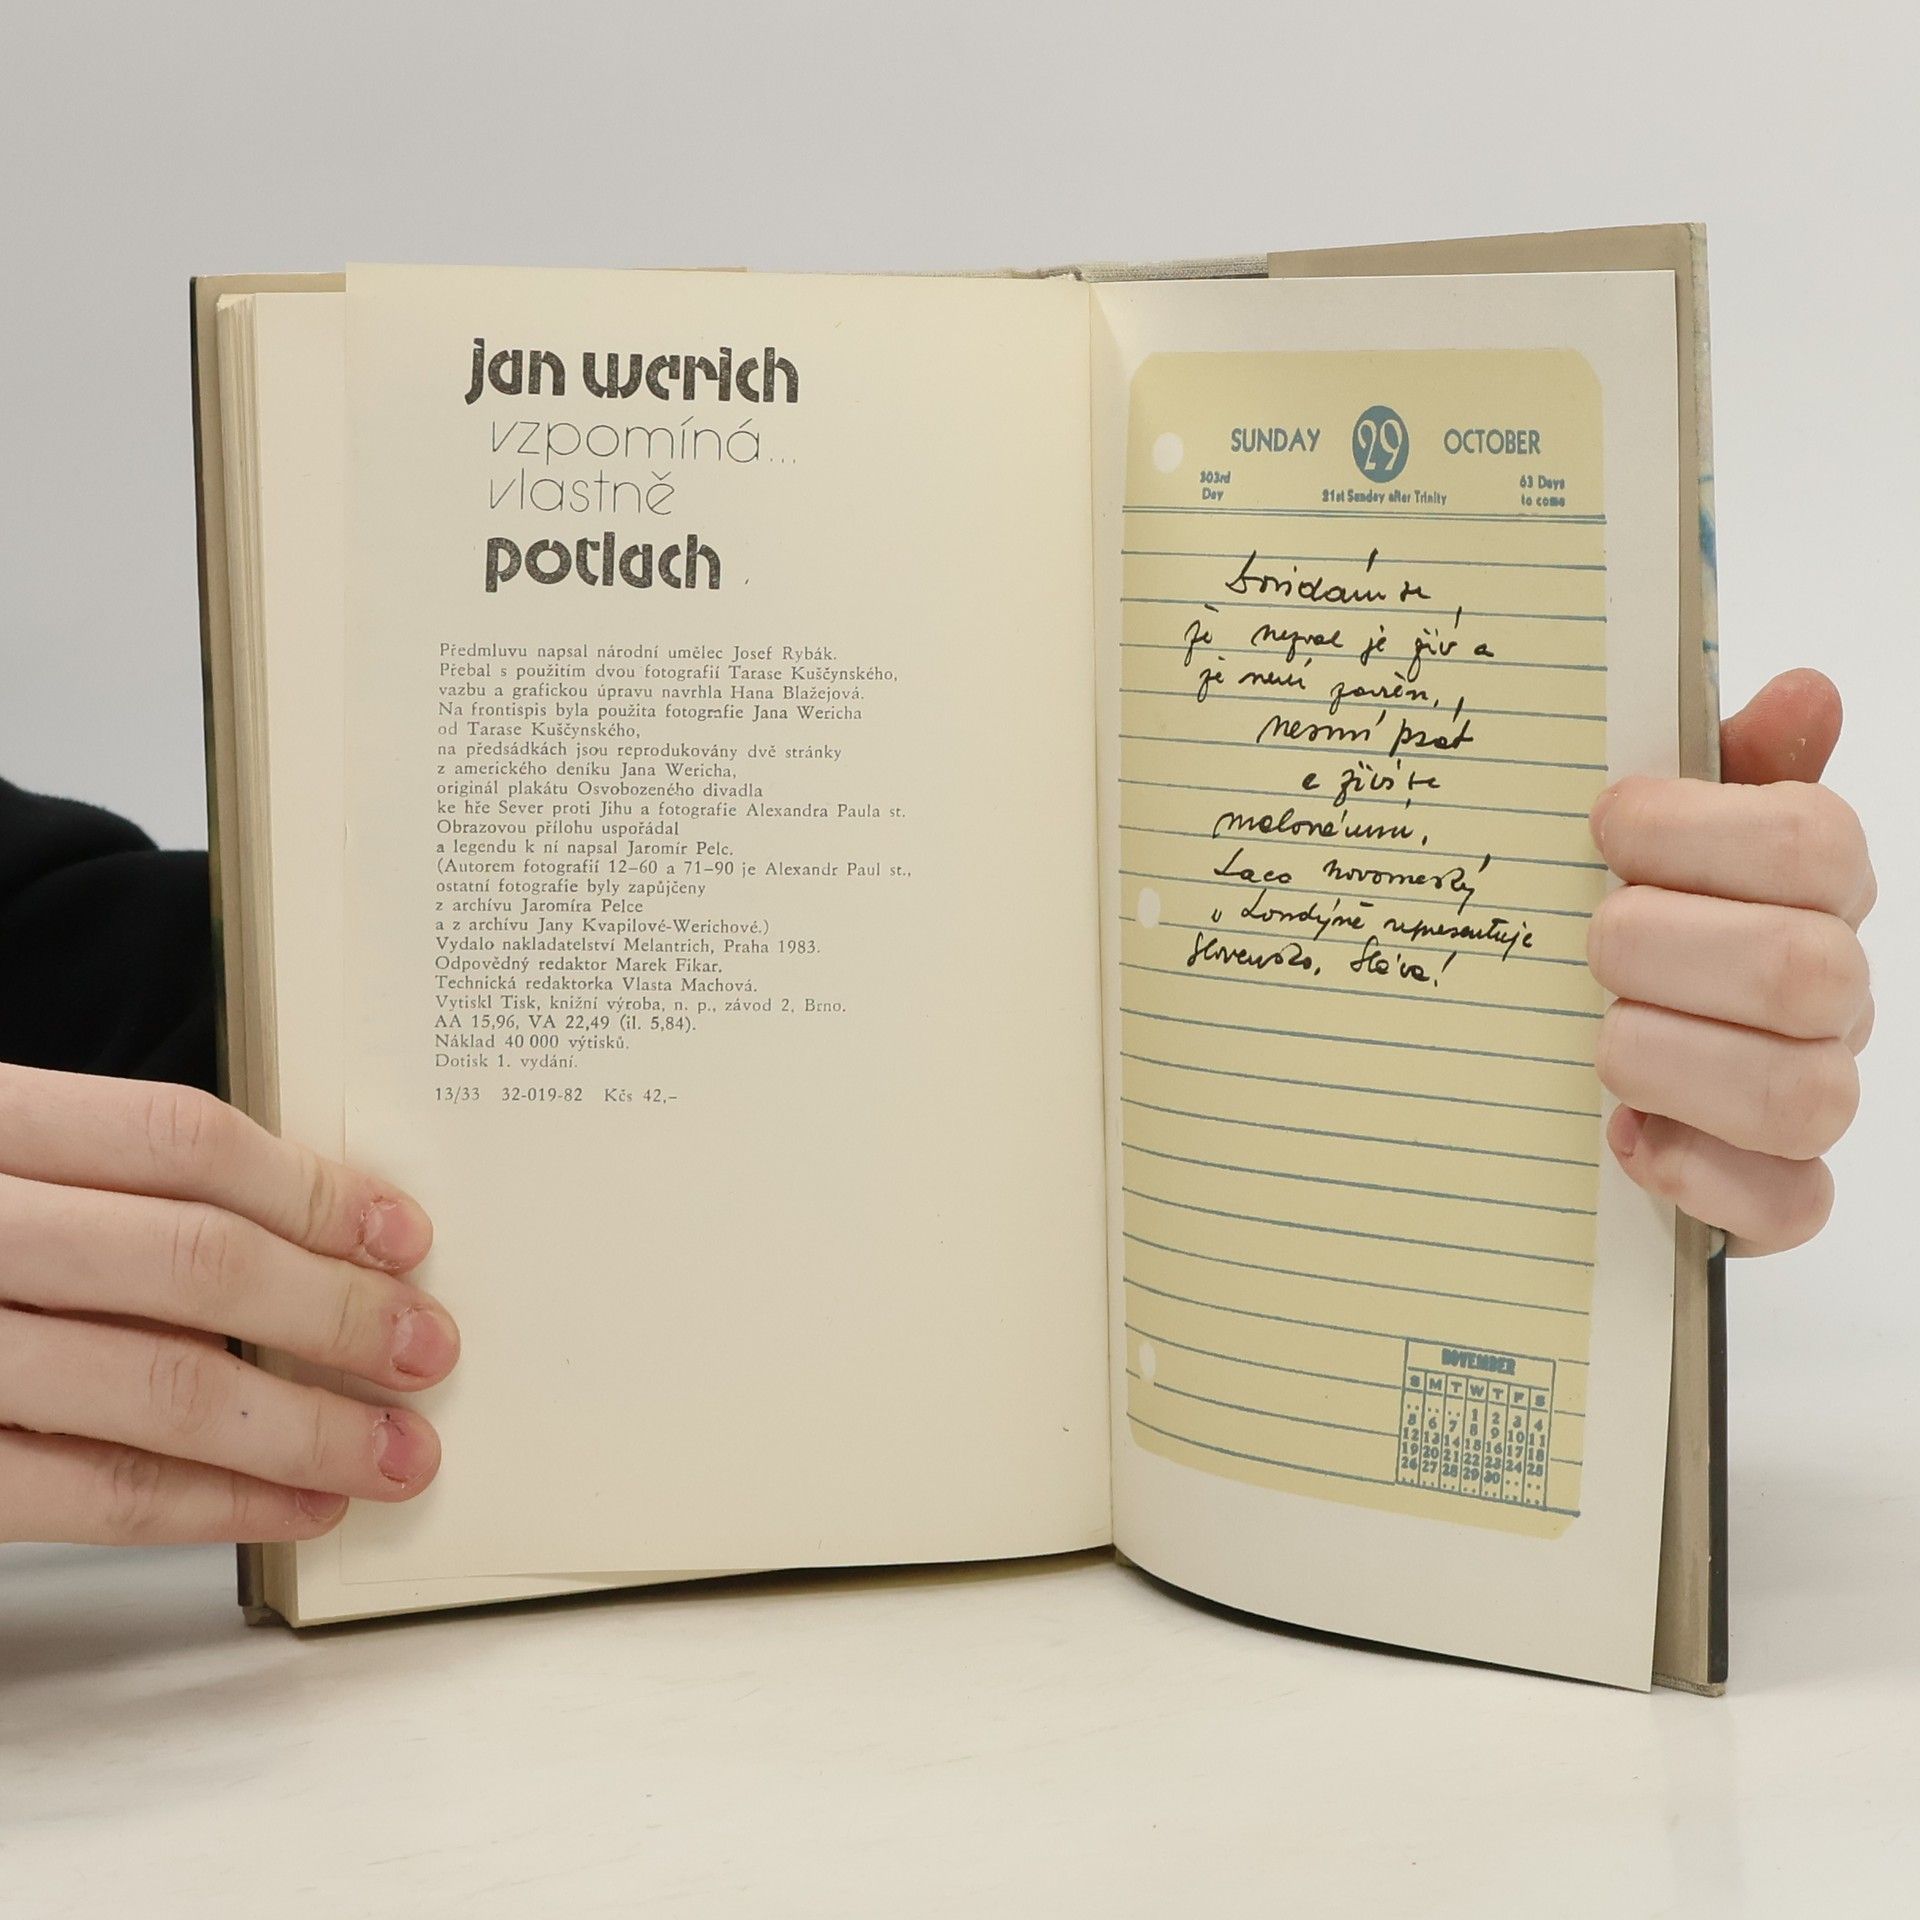 jan werich
vzpomíná...
vlastně
potlach
Předmluvu napsal národní umělec Josef Rybák.
Přebal s použitím dvou fotografií Tarase Kuščynského,
vazbu a grafickou úpravu navrhla Hana Blažejová.
Na frontispis byla použita fotografie Jana Wericha
od Tarase Kuščynského,
na předsádkách jsou reprodukovány dvě stránky
z amerického deníku Jana Wericha,
originál plakátu Osvobozeného divadla
ke hře Sever proti Jihu a fotografie Alexandra Paula st.
Obrazovou přílohu uspořádal
a legendu k ní napsal Jaromír Pelc.
(Autorem fotografií 12–60 a 71–90 je Alexandr Paul st.,
ostatní fotografie byly zapůjčeny
z archívu Jaromíra Pelce
a z archívu Jany Kvapilové-Werichové.)
Vydalo nakladatelství Melantrich, Praha 1983.
Odpovědný redaktor Marek Fikar.
Technická redaktorka Vlasta Machová.
Vytiskl Tisk, knižní výroba, n. p., závod 2, Brno.
AA 15,96, VA 22,49 (il. 5,84).
Náklad 40 000 výtisků.
Dotisk 1. vydání.
13/33 32-019-82 Kčs 42,–
SUNDAY 29 OCTOBER
303rd Day 21st Sunday after Trinity 63 Days to come
Dovídám se,
že nezval je živ a
že není zavřen,
nesmí psát
a živí se
malováním.
Laco novomeský
v Londýně representuje
Slovensko. Sláva!
NOVEMBER
S M T W T F S
.. .. .. 1 2 3 4
5 6 7 8 9 10 11
12 13 14 15 16 17 18
19 20 21 22 23 24 25
26 27 28 29 30 .. ..